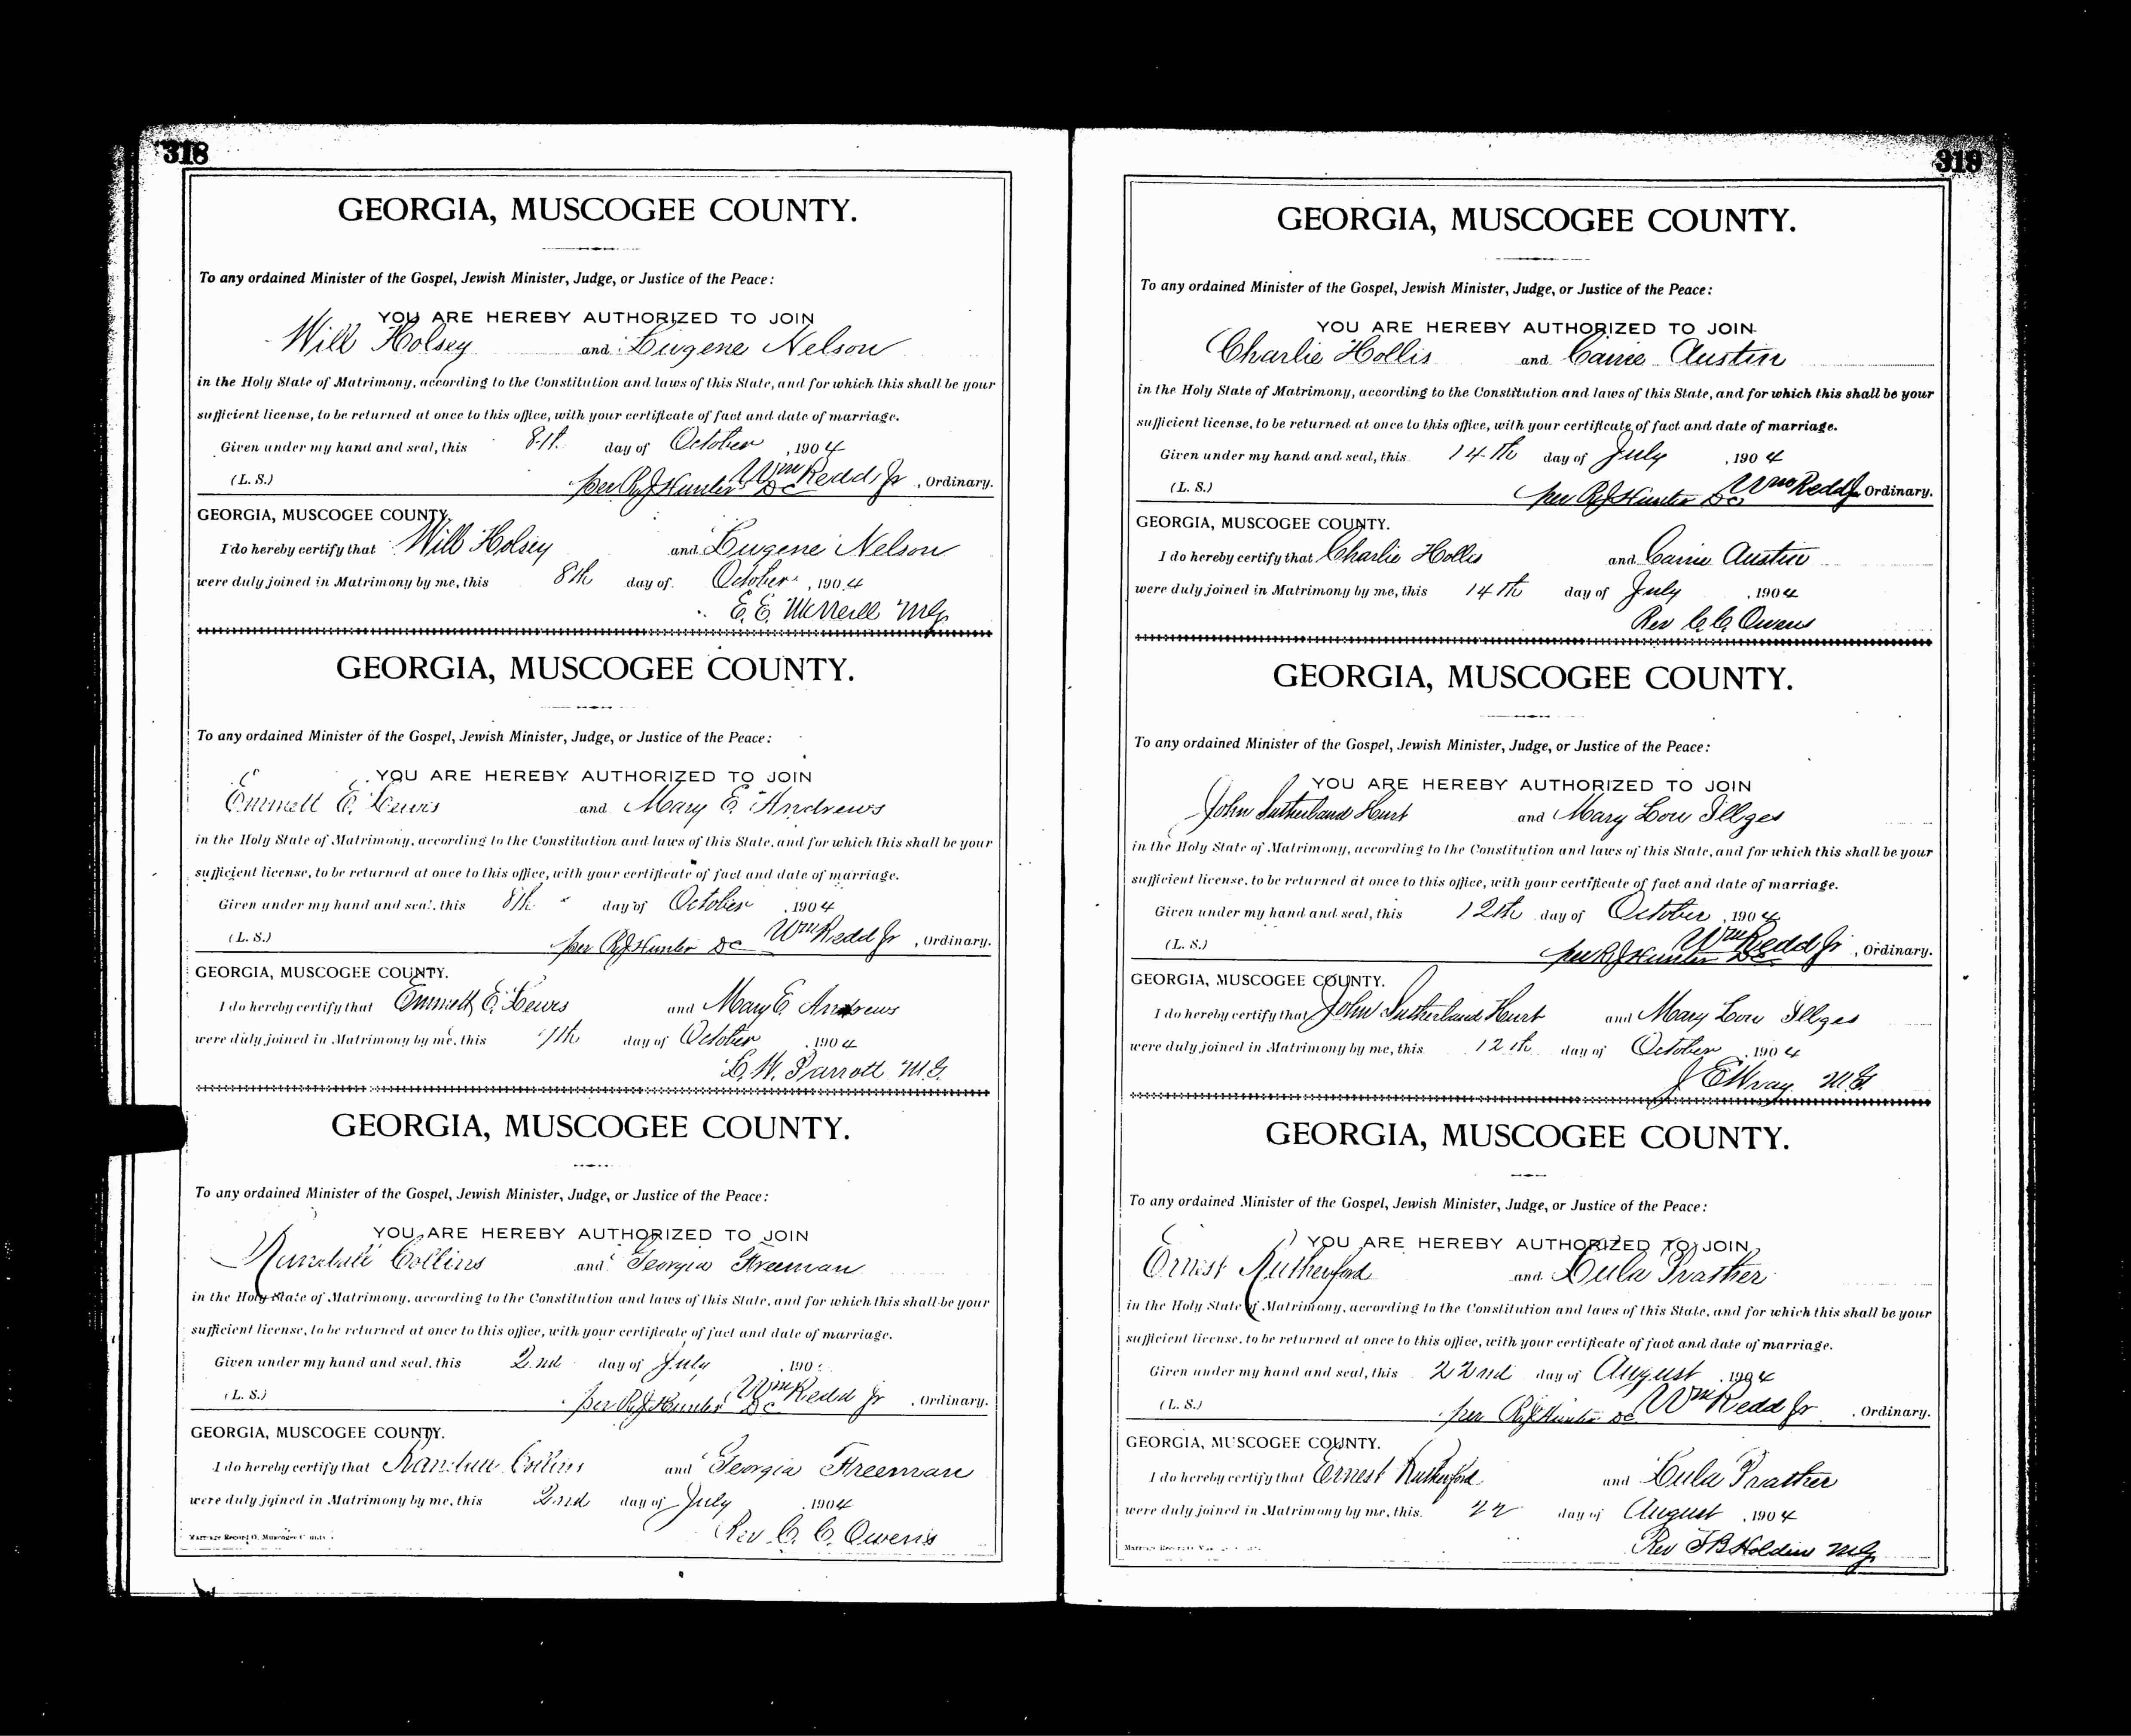 318
GEORGIA, MUSCOGEE COUNTY.
To any ordained Minister of the Gospel, Jewish Minister, Judge, or Justice of the Peace:
YOU ARE HEREBY AUTHORIZED TO JOIN
Will Holsey and Eugene Nelson
in the Holy State of Matrimony, according to the Constitution and laws of this State, and for which this shall be your
sufficient license, to be returned at once to this office, with your certificate of fact and date of marriage.
Given under my hand and seal, this 8th day of October, 1904
(L. S.) per R J Hunter DC Wm Redd Jr, Ordinary.
GEORGIA, MUSCOGEE COUNTY.
I do hereby certify that Will Holsey and Eugene Nelson
were duly joined in Matrimony by me, this 8th day of October, 1904
E. E. MG
GEORGIA, MUSCOGEE COUNTY.
To any ordained Minister of the Gospel, Jewish Minister, Judge, or Justice of the Peace:
YOU ARE HEREBY AUTHORIZED TO JOIN
Emmett E. Lewis and Mary E. Andrews
in the Holy State of Matrimony, according to the Constitution and laws of this State, and for which this shall be your
sufficient license, to be returned at once to this office, with your certificate of fact and date of marriage.
Given under my hand and seal, this 8th day of October, 1904
(L. S.) per R J Hunter DC Wm Redd Jr, Ordinary.
GEORGIA, MUSCOGEE COUNTY.
I do hereby certify that Emmett E. Lewis and Mary E Andrews
were duly joined in Matrimony by me, this day of October, 1904
Parrott M.G.
GEORGIA, MUSCOGEE COUNTY.
To any ordained Minister of the Gospel, Jewish Minister, Judge, or Justice of the Peace:
YOU ARE HEREBY AUTHORIZED TO JOIN
Collins and Georgia Freeman
in the Holy State of Matrimony, according to the Constitution and laws of this State, and for which this shall be your
sufficient license, to be returned at once to this office, with your certificate of fact and date of marriage.
Given under my hand and seal, this 2nd day of July, 190
(L. S.) per R J Hunter DC Wm Redd Jr, Ordinary.
GEORGIA, MUSCOGEE COUNTY.
I do hereby certify that Collins and Georgia Freeman
were duly joined in Matrimony by me, this 2nd day of July, 1904
Rev C. C. Owens
Marriage Record O, Muscogee County
319
GEORGIA, MUSCOGEE COUNTY.
To any ordained Minister of the Gospel, Jewish Minister, Judge, or Justice of the Peace:
YOU ARE HEREBY AUTHORIZED TO JOIN
Charlie Hollis and Carrie Austin
in the Holy State of Matrimony, according to the Constitution and laws of this State, and for which this shall be your
sufficient license, to be returned at once to this office, with your certificate of fact and date of marriage.
Given under my hand and seal, this 14th day of July, 1904
(L. S.) per R J Hunter DC Wm Redd Jr Ordinary.
GEORGIA, MUSCOGEE COUNTY.
I do hereby certify that Charlie Hollis and Carrie Austin
were duly joined in Matrimony by me, this 14th day of July, 1904
Rev C. C. Owens
GEORGIA, MUSCOGEE COUNTY.
To any ordained Minister of the Gospel, Jewish Minister, Judge, or Justice of the Peace:
YOU ARE HEREBY AUTHORIZED TO JOIN
John Sutherland Hurt and Mary Lou Illges
in the Holy State of Matrimony, according to the Constitution and laws of this State, and for which this shall be your
sufficient license, to be returned at once to this office, with your certificate of fact and date of marriage.
Given under my hand and seal, this 12th day of October, 1904
(L. S.) per R J Hunter DC Wm Redd Jr, Ordinary.
GEORGIA, MUSCOGEE COUNTY.
I do hereby certify that John Sutherland Hurt and Mary Lou Illges
were duly joined in Matrimony by me, this 12th day of October, 1904
J E Wray M.G
GEORGIA, MUSCOGEE COUNTY.
To any ordained Minister of the Gospel, Jewish Minister, Judge, or Justice of the Peace:
YOU ARE HEREBY AUTHORIZED TO JOIN
Ernest Rutherford and Lula Prather
in the Holy State of Matrimony, according to the Constitution and laws of this State, and for which this shall be your
sufficient license, to be returned at once to this office, with your certificate of fact and date of marriage.
Given under my hand and seal, this 22nd day of August, 1904
(L. S.) per R J Hunter DC Wm Redd Jr, Ordinary.
GEORGIA, MUSCOGEE COUNTY.
I do hereby certify that Ernest Rutherford and Lula Prather
were duly joined in Matrimony by me, this 22 day of August, 1904
Rev MG